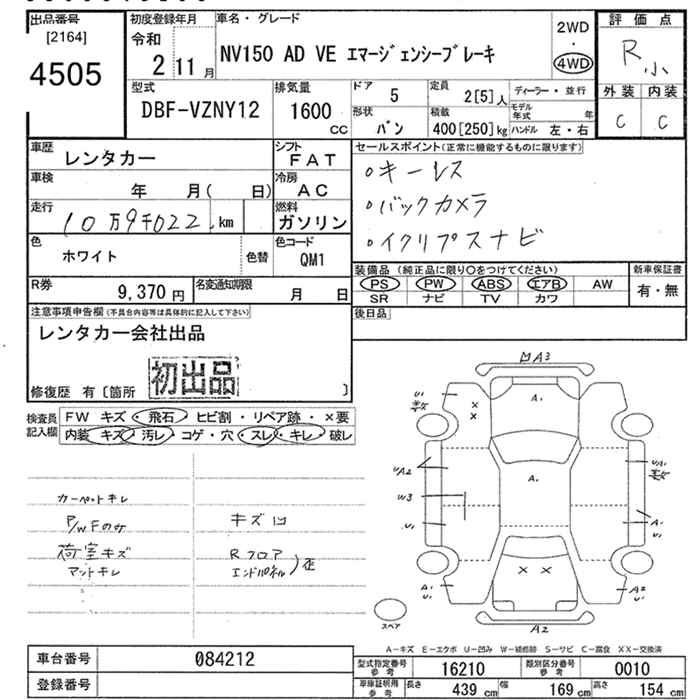 出品番号 初度登録年月 車名・グレード 評価点
[2164] 令和 2WD
4505 2 11月 NV150 AD VE エマージェンシーブレーキ ・ R 小
4WD
型式 排気量 ドア 5 定員 2[5]人 ディーラー・並行 外装 内装
DBF-VZNY12 1600 cc 形状 バン 積載 400[250]kg モデル年式 年 C C
ハンドル 左・右
車歴 レンタカー シフト FAT セールスポイント(正常に機能するものに限ります)
車検 年 月( 日) 冷房 AC ○キーレス
走行 10万9千022km 燃料 ガソリン ○バックカメラ
色 ホワイト 色替 色コード QM1 ○イクリプスナビ
R券 9,370円 名変通知期限 月 日 装備品(純正品に限り○をつけてください) 新車保証書
PS PW ABS エアB AW 有・無
SR ナビ TV カワ
注意事項申告欄(不具合内容等は具体的に記入して下さい) 後日品
レンタカー会社出品
初出品
修復歴 有〔箇所 〕
検査員記入欄 FW キズ・飛石・ヒビ割・リペア跡・×要
内装 キズ・汚レ・コゲ・穴・スレ・キレ・破レ
カーペットキレ
P/WFのみ キズ凹
荷室キズ Rフロア
マットキレ エンドパネル)歪
A3
A1
U1
UA2
A1
W3
U1
UA1
A1
U1
A1
U1
A2
U1
× ×
スペア
A2
A-キズ E-エクボ U-凹み W-補修跡 S-サビ C-腐食 XX-交換済
車台番号 084212 型式指定番号 参考 16210 類別区分番号 参考 0010
登録番号 車庫証明用 参考 長さ 439 cm 幅 169 cm 高さ 154 cm